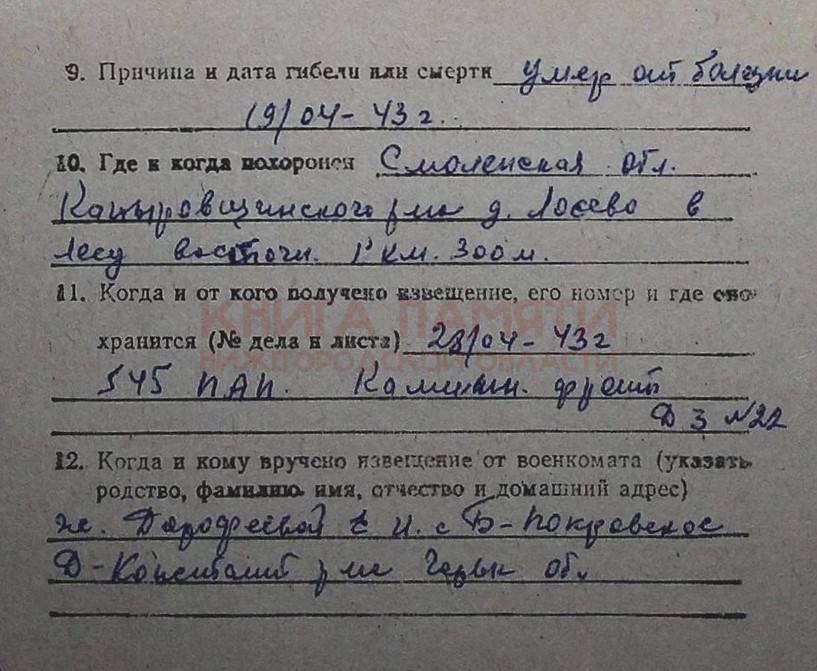 9. Причина и дата гибели или смерти умер от болезни
19/04-43 г.
10. Где и когда похоронен Смоленская обл.
р-на д. Лосево в
лесу восточн. 1 км. 300 м.
11. Когда и от кого получено извещение, его номер и где оно
КНИГА ПАМЯТИ
хранится (№ дела и листа) 28/04-43 г
НИЖЕГОРОДСКОЙ ОБЛАСТИ
545 ПАП. Калинин. фронт
Д 3 №22
12. Когда и кому вручено извещение от военкомата (указать
родство, фамилию, имя, отчество и домашний адрес)
ж. Дорофеевой Е И. с Б-Покровское
Д-Констант р-на Горьк обл